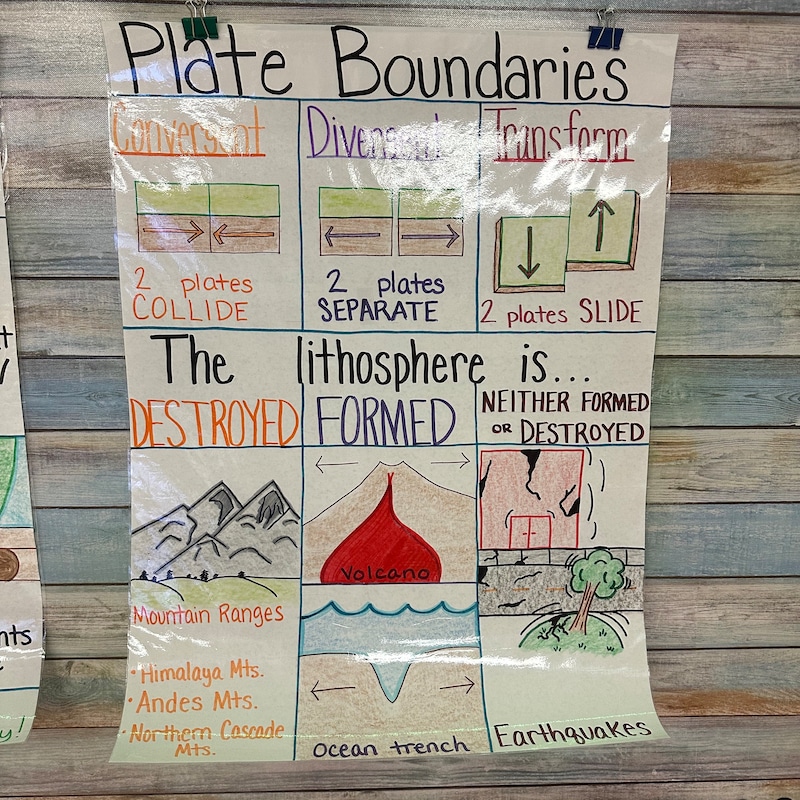 Plate Boundaries
Convergent
Divergent
Transform
2 plates
COLLIDE
2 plates
SEPARATE
2 plates SLIDE
The lithosphere is...
DESTROYED
FORMED
NEITHER FORMED
OR DESTROYED
Volcano
Mountain Ranges
• Himalaya Mts.
• Andes Mts.
• Northern Cascade
Mts.
Ocean trench
Earthquakes